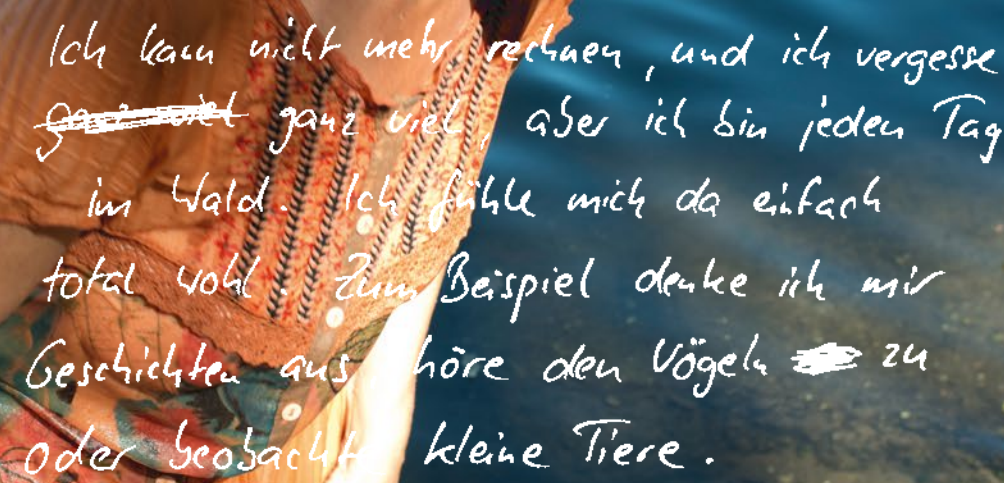 Ich kann nicht mehr rechnen, und ich vergesse
ganz viel ganz viel, aber ich bin jeden Tag
im Wald. Ich fühle mich da einfach
total wohl. Zum Beispiel denke ich mir
Geschichten aus, höre den Vögeln zu
oder beobachte kleine Tiere.